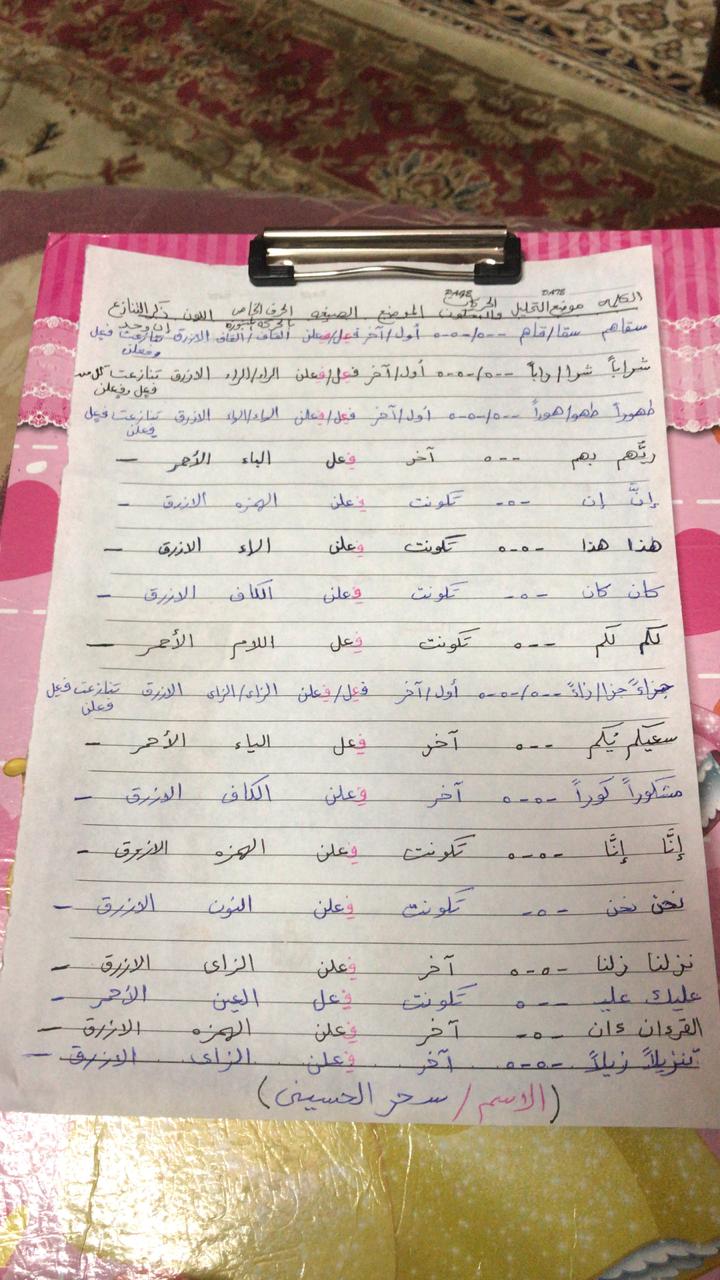 PAGE DATE
الكلمه موضع التحليل الحركات والسكون الموضع الصيغه الحرف الخاص بالحركة اللون ذكر التنازع إن وجد
سقاهم سقا/قاهم --o-o/--o-o أول/آخر فعل/فعلن القاف/القاف الازرق تنازعت فعل وفعلن
شراباً شرا/راباً --o-o/--o أول/آخر فعل/فعلن الراء/الراء الازرق تنازعت كل من فعل وفعلن
طهوراً طهو/هوراً --o-o/--o أول/آخر فعل/فعلن الهاء/الهاء الازرق تنازعت فعل فعلن
ربَّهم بهم --o آخر فعل الباء الأحمر —
إنَّ إن -o- تكونت فعلن الهمزه الازرق -
هذا هذا -o-o تكونت فعلن الهاء الازرق -
كان كان -o- تكونت فعلن الكاف الازرق -
لكم لكم --o تكونت فعل اللام الأحمر —
جزاءً جزا/زاءً --o-o/--o أول/آخر فعل/فعلن الزاء/الزاى الازرق تنازعت فعل فعلن
سعيكم يُكم --o آخر فعل الياء الأحمر -
مشكوراً كوراً -o-o آخر فعلن الكاف الازرق -
إنَّا إنَّا -o-o تكونت فعلن الهمزه الازرق -
نحن نحن -o- تكونت فعلن النون الازرق -
نزلنا زلنا -o-o آخر فعلن الزاى الازرق -
عليك عليـ --o تكونت فعل العين الأحمر -
القرءان ءان -o- آخر فعلن الهمزه الازرق -
تنزيلاً زيلاً -o-o آخر فعلن الزاى الازرق —
(الاسم / سحر الحسينى)